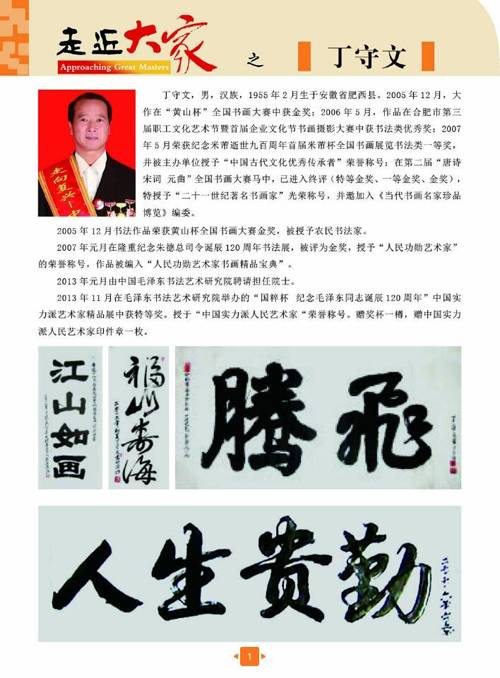 走近大家 之 丁守文
Approaching Great Masters
丁守文，男，汉族，1955年2月生于安徽省肥西县。2005年12月，大
作在“黄山杯”全国书画大赛中获金奖；2006年5月，作品在合肥市第三
届职工文化艺术节暨首届企业文化节书画摄影大赛中获书法类优秀奖；2007
年5月荣获纪念米芾逝世九百周年首届米芾杯全国书画展览书法类一等奖，
并被主办单位授予“中国古代文化优秀传承者”荣誉称号；在第二届“唐诗
宋词 元曲”全国书画大赛马中，已进入终评（特等金奖、一等金奖、金奖），
特授予“二十一世纪著名书画家”光荣称号，并邀加入《当代书画名家珍品
博览》编委。
2005年12月书法作品荣获黄山杯全国书画大赛金奖，被授予农民书法家。
2007年元月在隆重纪念朱德总司令诞辰120周年书法展，被评为金奖，授予“人民功勋艺术家”
的荣誉称号，作品被编入“人民功勋艺术家书画精品宝典”。
2013年元月由中国毛泽东书法艺术研究院聘请担任院士。
2013年11月在毛泽东书法艺术研究院举办的“国粹杯 纪念毛泽东同志诞辰120周年”中国实
力派艺术家精品展中获特等奖。授于“中国实力派人民艺术家“荣誉称号。赠奖杯一樽，赠中国实力
派人民艺术家印件章一枚。
江山如画
福山寿海
腾飞
人生贵勤
1